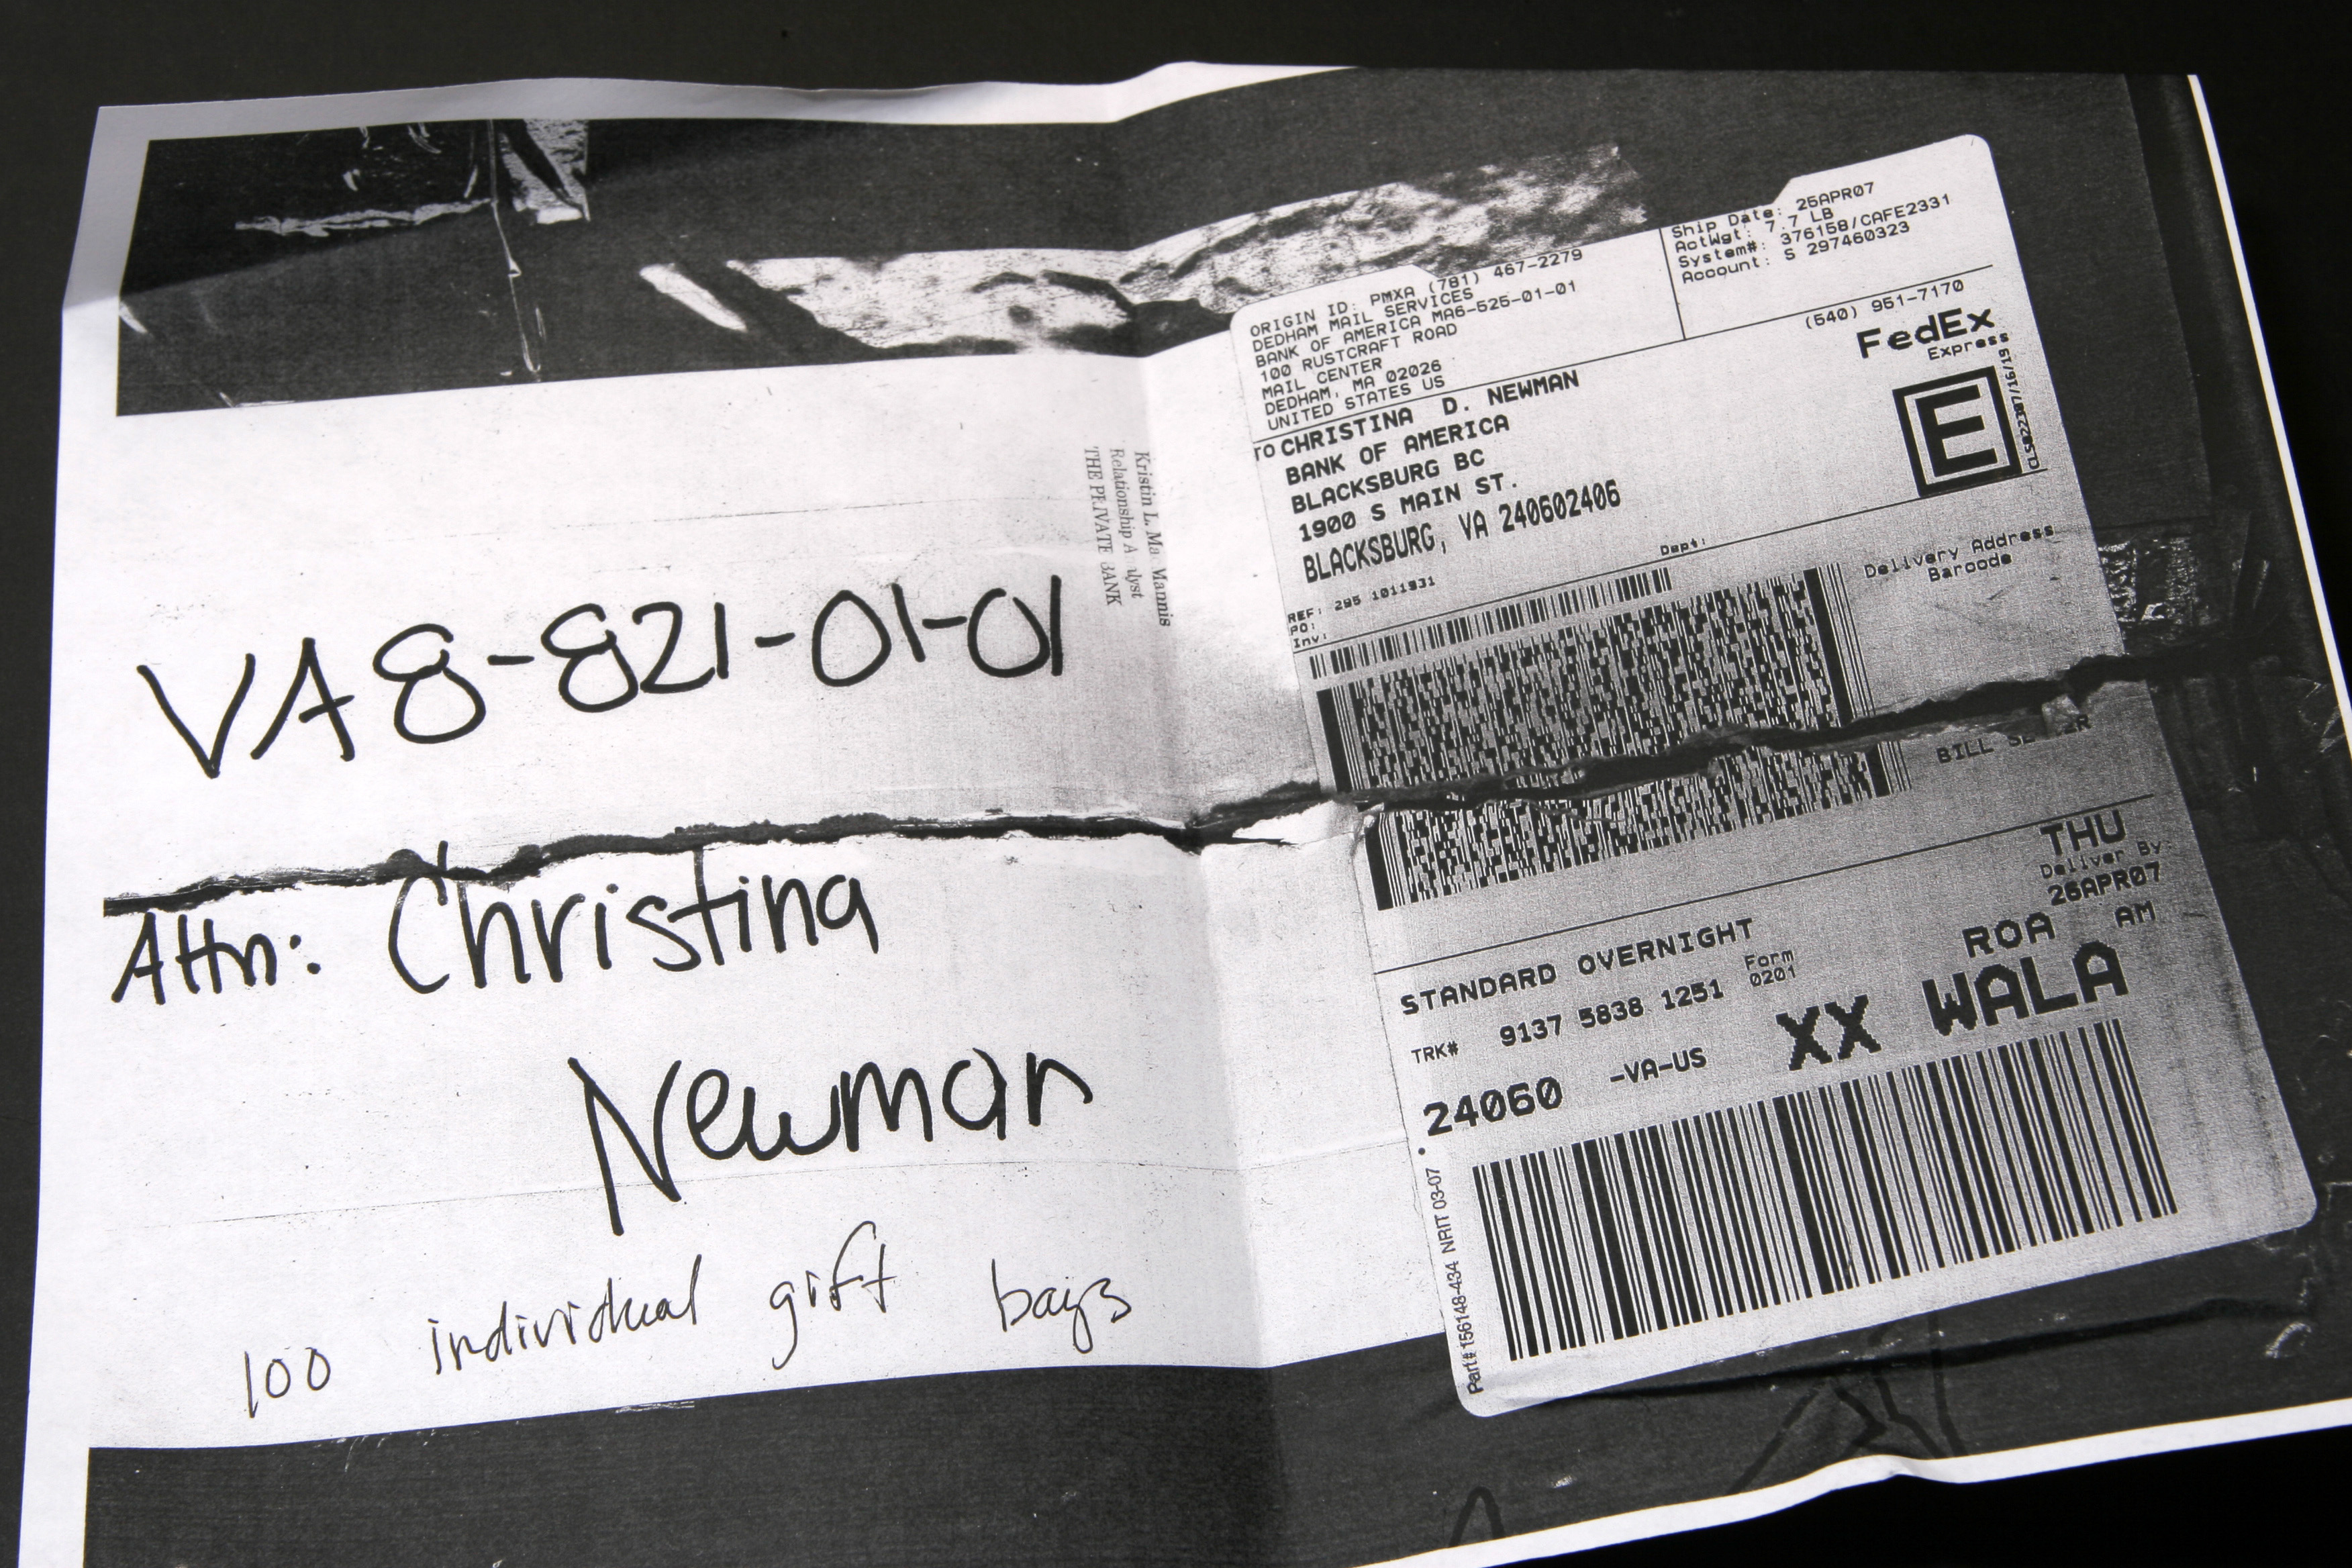 VA8-821-01-01
Attn: Christina
Newman
100 individual gift bags
Kristin L.
Relationship
THE PRIVATE BANK
ORIGIN ID: PMXA (781) 467-2279
DEDHAM MAIL SERVICES
BANK OF AMERICA MA6-525-01-01
100 RUSTCRAFT ROAD
MAIL CENTER
DEDHAM, MA 02026
UNITED STATES US
Ship Date: 25APR07
ActWgt: 7.7 LB
System#: 376158/CAFE2331
Account: S 297460323
TO CHRISTINA D. NEWMAN
(540) 951-7170
BANK OF AMERICA
BLACKSBURG BC
1900 S MAIN ST.
BLACKSBURG, VA 240602406
FedEx
Express
E
REF: 295 1011931
PO:
Inv:
Dept:
Delivery Address
Barcode
BILL
THU
Deliver By:
26APR07
STANDARD OVERNIGHT
ROA AM
TRK# 9137 5838 1251 Form
0201
24060 -VA-US XX WALA
Part# 156148-434 NRIT 03-07